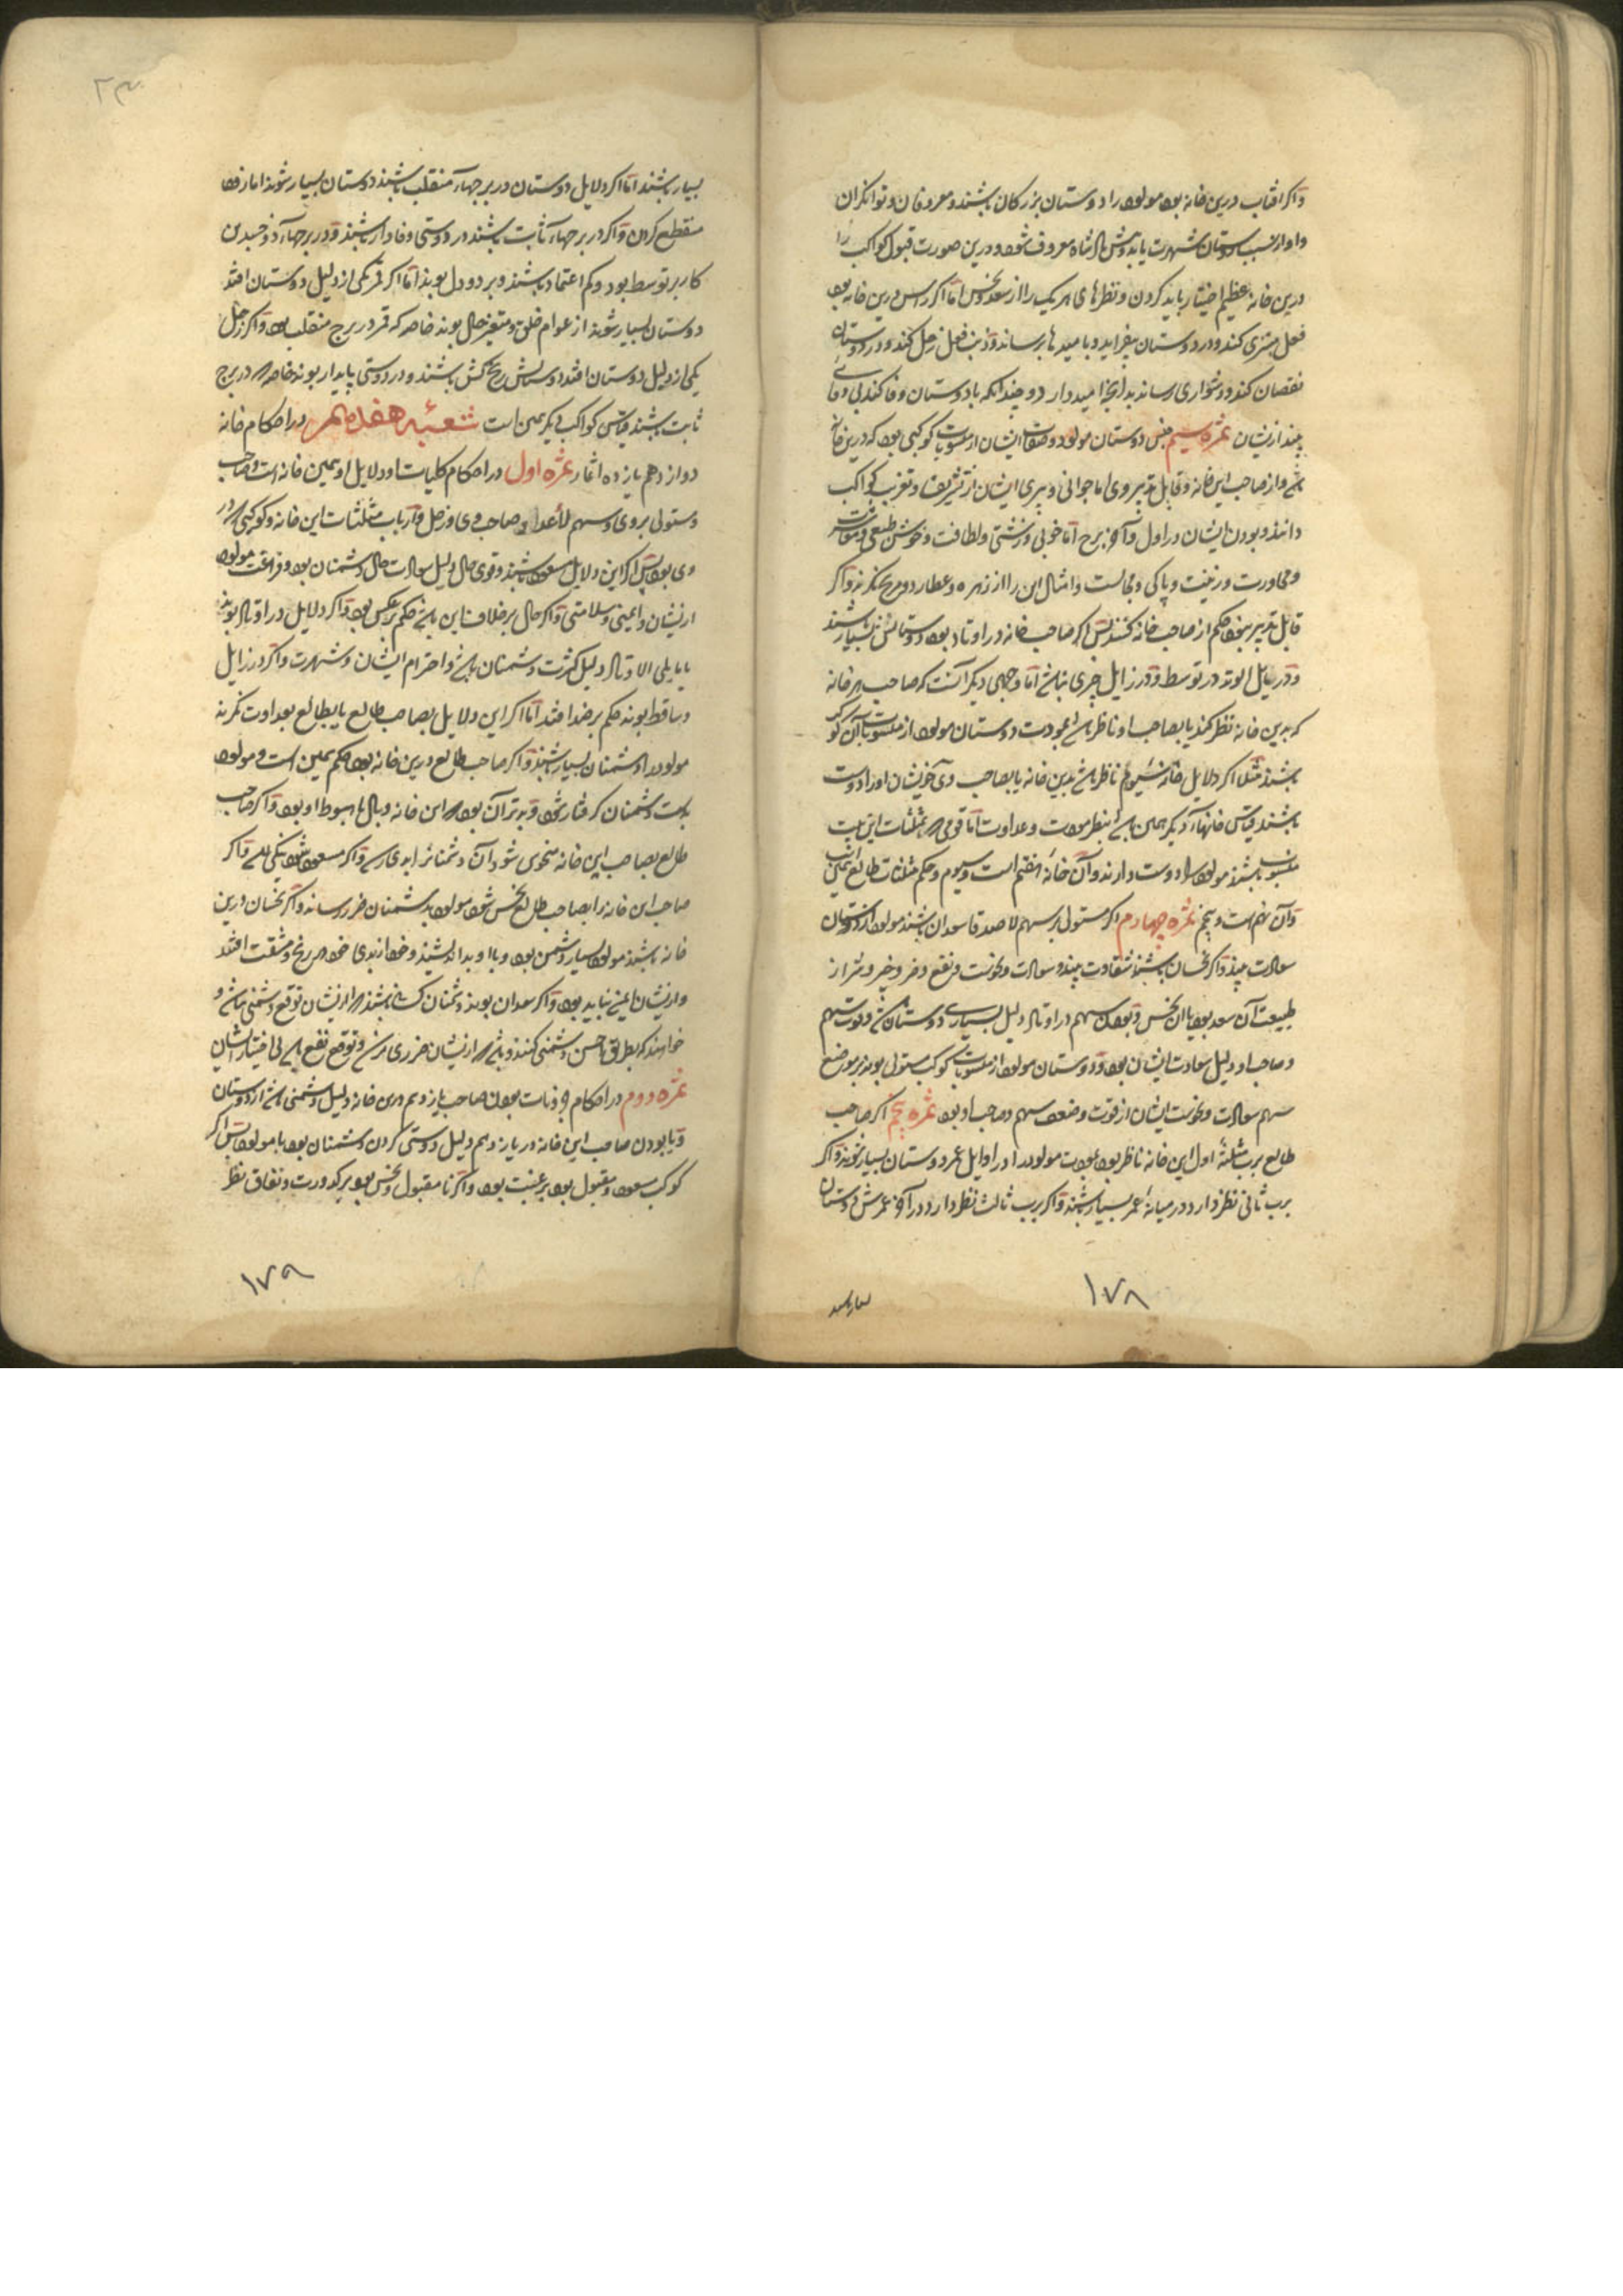 واکر افتاب درین خانه بود مولود را دوستان بزرکان باشند و معروفان و توانکران
و او از سبب دوستان شهرت یابد معروف شود و درین صورت قبول کواکب را
درین خانه عظیم اختیار باید کردن و نظرهای هر یک را از سعد و نحس اما اکر راس درین خانه بود
فعل مشتری کند و در دوستان بیفزاید و بامیدها برساند و ذنب فعل زحل کند و در دوستان
نقصان کند و دشواری رساند بدانچه امیدوار بود چندانکه با دوستان وفا کند بی وفایی
بیند ازیشان ثمره سیم جنس دوستان مولود و صفات ایشان از منسوبات کوکبی بود که درین خانه
باشد و از صاحب این خانه و قابل تدبیر وی اما جوانی و پیری ایشان از تشریق و تغریب کواکب
دانند و بودن ایشان در اول و آخر برج اما خوبی و زشتی و لطافت و خوش طبعی و معاشرت
و محاورت و زینت و پاکی و مجالست و امثال این را از زهره و عطارد و مریخ نکرند و اکر
قابل تدبیر نبود حکم از صاحب خانه کنند پس اکر صاحب خانه در اوتاد بود دوستانش بسیار باشند
و در مایل الوتد در توسط و در زایل چیزی نباشد اما وجهی دیکر آنست که صاحب هر خانه
که بدین خانه نظر کند یا بصاحب او ناظر باشد بمودت دوستان مولود از منسوبات آن کوکب
باشند مثلا اکر دلایل خانه سیوم ناظر باشد بدین خانه یا بصاحب وی خویشان او را دوست
باشند قیاس خانهاء دیکر همین باشد بنظر مودت و عداوت اما قومی که بمثلثات این بیت
منسوب باشند مولود را دوست دارند و آن خانه هفتم است و سیوم و حکم مثلثات طالع همین
و آن نهم است و پنجم ثمره چهارم اکر مستولی بر سهم الاصدقا سعدان باشند مولود از دوستان
سعادت بیند و اکر نحسان باشند شقاوت بیند و سعادت و نحوست و نفع و ضر و خیر و شر از
طبیعت آن سعد بود یا آن نحس و بودن سهم در اوتاد دلیل بسیاری دوستان باشد و قوت سهم
و صاحب او دلیل سعادت ایشان بود و دوستان مولود از منسوبات کوکب مستولی بوند بر موضع
سهم سعادت و نحوست ایشان از قوت و ضعف سهم و صاحب او بود ثمره پنجم اکر صاحب
طالع برب مثلثه اول این خانه ناظر بود بمودت مولود را در اوایل عمر دوستان بسیار شوند و اکر
برب ثانی نظر دارد در میانه عمر بسیار باشند و اکر برب ثالث نظر دارد در آخر عمرش دوستان
١٧٨
بسیار باشند
بسیار باشند اما اکر دلایل دوستان در برجهاء منقلب باشند دوستان بسیار شوند اما زود
منقطع کردن و اکر در برجهاء ثابت باشند در دوستی وفادار باشند و در برجهاء ذوجسدین
کار بر توسط بود و کم اعتماد باشند و بر دو دل بوند اما اکر قمر یکی از دلیل دوستان افتد
دوستان بسیار شوند از عوام خلق و متغیر حال بوند خاصه که قمر در برج منقلب بود و اکر زحل
یکی از دلیل دوستان افتد دوستانش رنج کش باشند و در دوستی پایدار بوند خاصه که در برج
ثابت باشند قیاس کواکب دیکر همین است شعبه هفدهم در احکام خانه
دوازدهم یازده اثمار ثمره اول در احکام کلیات او دلایل او همین خانه است و صاحب
و مستولی بر وی و سهم الأعدا و صاحب وی و زحل و ارباب مثلثات این خانه و کوکبی که در
وی بود پس اکر این دلایل مسعود باشند و قوی حال دلیل سعادت حال دشمنان بود و فراغت مولود
ازیشان و ایمنی و سلامتی و اکر حال بر خلاف این باشد حکم بر عکس بود و اکر دلایل در اوتاد بوند
یا مایلی الاوتاد دلیل کثرت دشمنان باشد و احترام ایشان و شهرت و اکر در زایل
و ساقط بوند حکم بر ضد افتد اما اکر این دلایل بصاحب طالع یا بطالع بعداوت نکرند
مولود را دشمنان بسیار باشند و اکر صاحب طالع درین خانه بود حکم همین است و مولود
بدست دشمنان کرفتار شود و بدتر آن بود که این خانه وبال یا هبوط او بود و اکر صاحب
طالع بصاحب این خانه منحوس شود آن دشمنانرا بد خواهد و اکر مسعود شود نیکی کند و اکر
صاحب این خانه را بصاحب طالع نحس شود مولود بدشمنان ضرر رساند و اکر نحسان درین
خانه باشند مولود بسیار دشمن بود و با او بد اندیشند و خود از بدی خود در رنج و مشقت افتند
و ازیشان ایمنی نباید بود و اکر سعدان بوند دشمنان کسانی باشند که ازیشان توقع دشمنی نباشد و
خواهند که بطریق احسن دشمنی کنند و باشد که ازیشان ضرری نرسد و توقع نفع باشد بی اختیار ایشان
ثمره دوم در احکام جزویات بودن صاحب یازدهم درین خانه دلیل دشمنی باشد از دوستان
و یا بودن صاحب این خانه در یازدهم دلیل دوستی کردن دشمنان بود با مولود پس اکر
کوکب مسعود و مقبول بود برغبت بود و اکر نامقبول و نحس بود بر کدورت و نفاق نظر
١٧٩